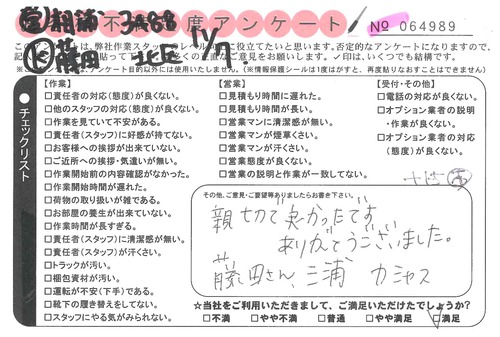 不 度アンケート
No 064989
3月88
藤田 北区
このアンケートは、弊社作業スタッフのレベル に役立てたいと思います。否定的なアンケートになりますので、
くの正直なご意見をお願いします。✓印は、いくつでも結構です。
アンケート目的以外には使用いたしません。(※情報保護シールは1度はがすと、再度貼りなおすことができません)
チェックリスト
【作業】
□責任者の対応(態度)が良くない。
□他のスタッフの対応(態度)が良くない。
□作業を見ていて不安がある。
□責任者(スタッフ)に好感が持てない。
□お客様への挨拶が出来ていない。
□ご近所への挨拶・気遣いが無い。
□作業開始前の内容確認がなかった。
□作業開始時間が遅れた。
□荷物の取り扱いが雑である。
□お部屋の養生が出来ていない。
□作業時間が長すぎる。
□責任者(スタッフ)に清潔感が無い。
□責任者(スタッフ)が汗くさい。
□トラックが汚い。
□梱包資材が汚い。
□運転が不安(下手)である。
□靴下の履き替えをしてない。
□スタッフにやる気がみられない。
【営業】
□見積もり時間に遅れた。
□見積もり時間が長い。
□営業マンに清潔感が無い。
□営業マンが煙草くさい。
□営業マンが汗くさい。
□営業態度が良くない。
□営業の説明と作業が一致してない。
【受付・その他】
□電話の対応が良くない。
□オプション業者の説明
・作業が良くない。
□オプション業者の対応
(態度)が良くない。
その他、ご意見・ご要望等ありましたらお書き下さい。
親切で良かったです
ありがとうございました。
藤田さん、三浦 カシャス
☆当社をご利用いただきまして、ご満足いただけたでしょうか?
□不満 □やや不満 □普通 □やや満足 □満足